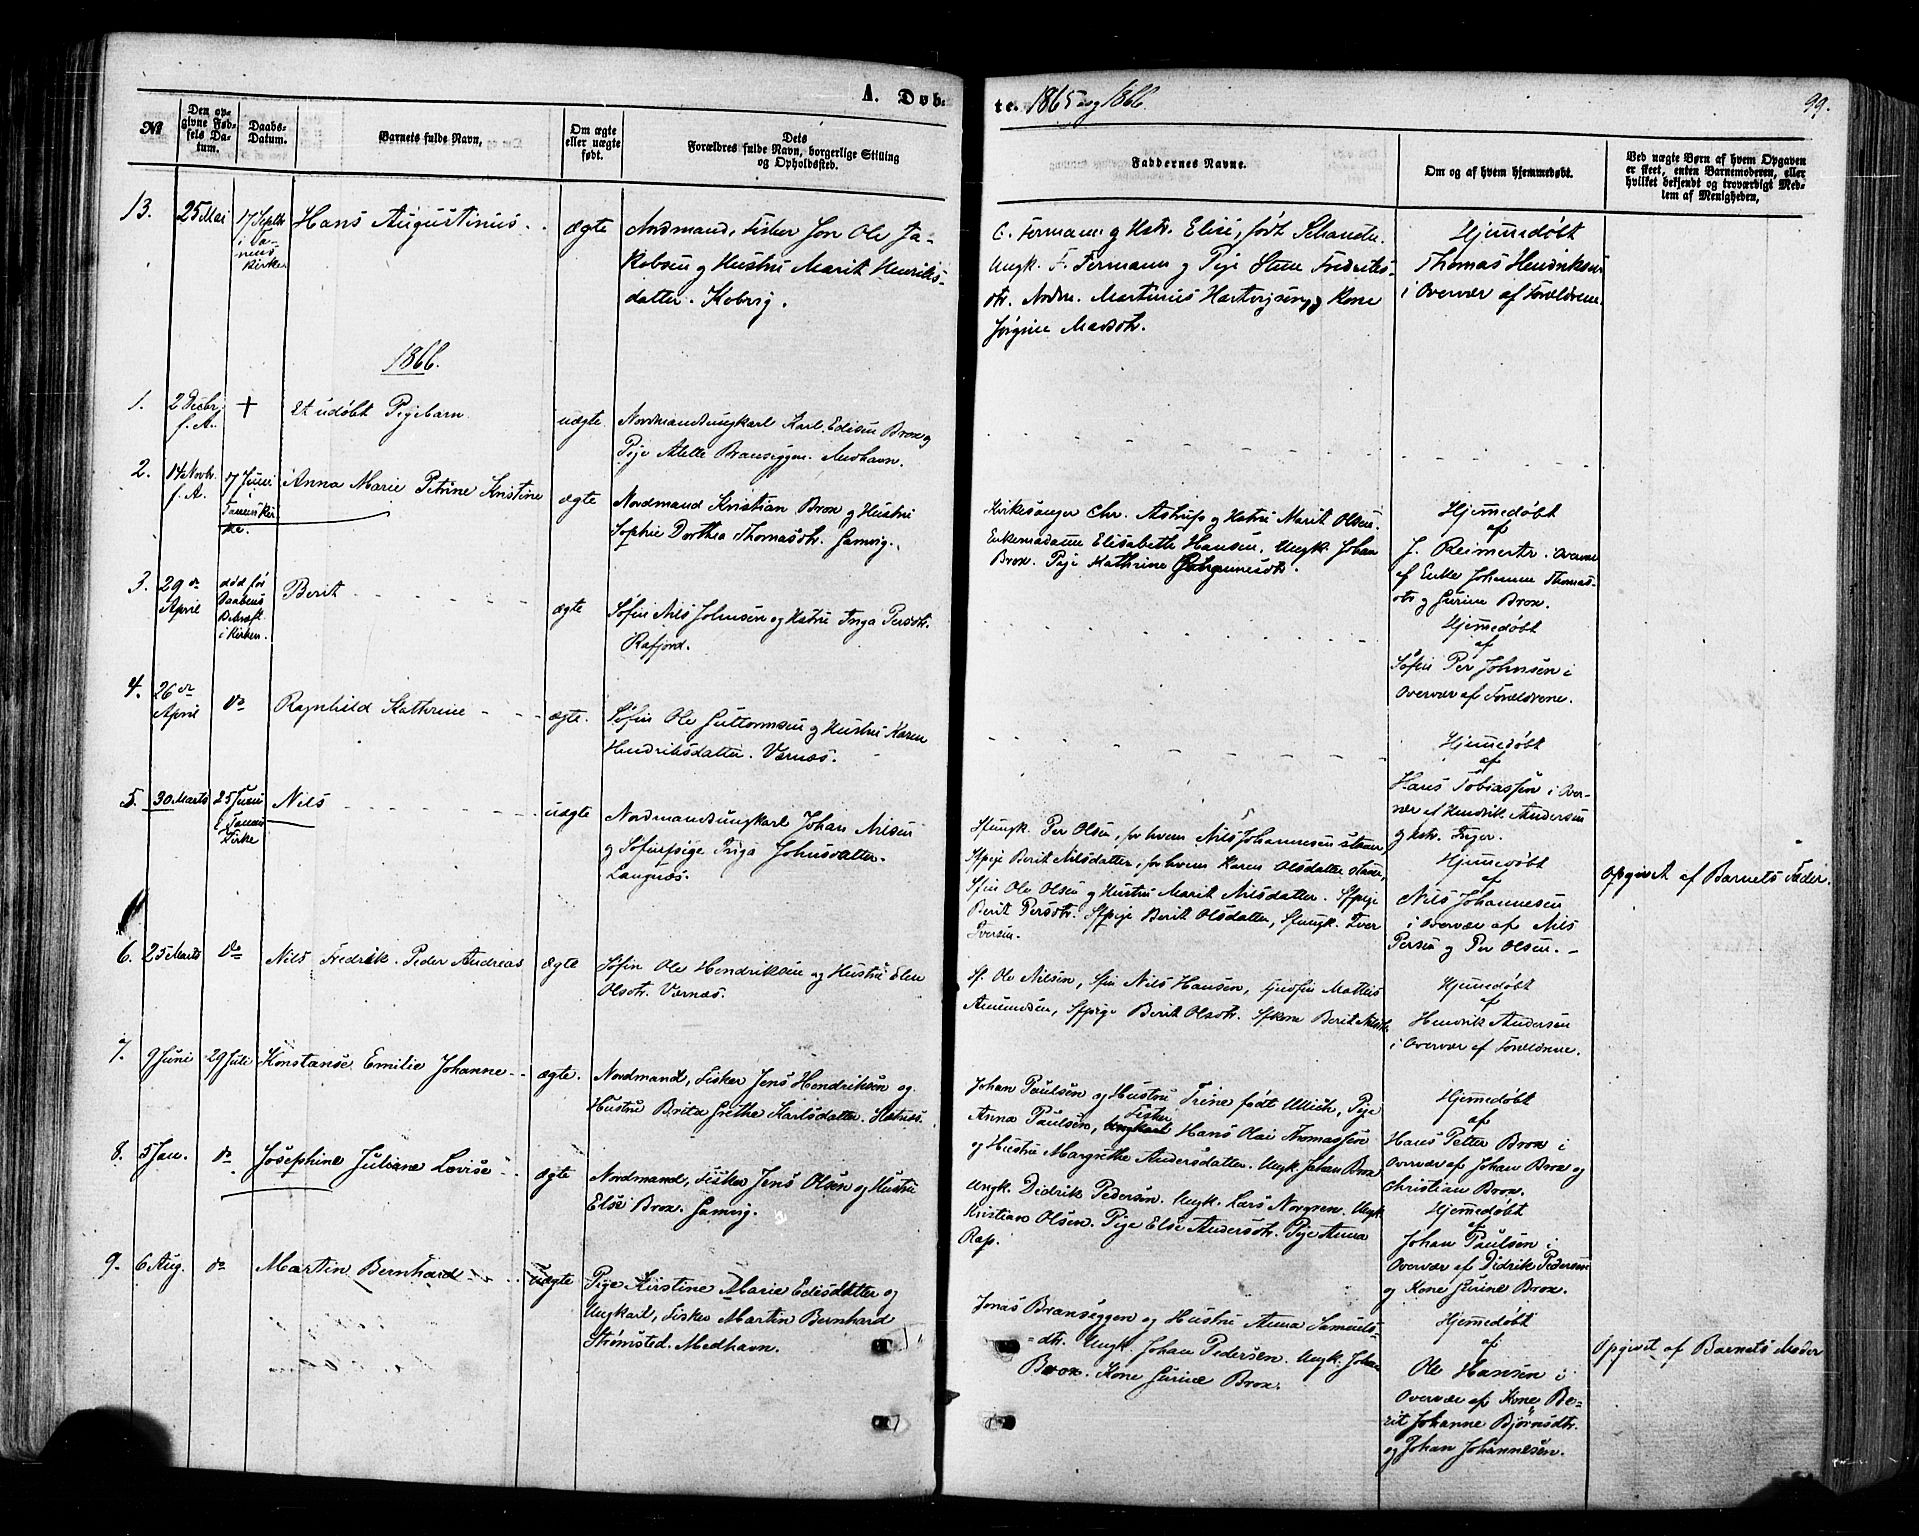 A. Døb-
te. 1865 og 1866.
99.
No
Den op-
givne Fød-
sels Da-
tum.
Daabs-
Datum.
Barnets fulde Navn,
Om ægte
eller uægte
født.
Dets
Forældres fulde Navn, borgerlige Stilling
og Opholdssted.
Faddernes Navne.
Om og af hvem hjemmedøbt.
Ved uægte Børn af hvem Opgaven
er skeet, enten Barnemoderen, eller
hvilket bekjendt og troværdigt Med-
lem af Menigheden,
13.
25 Mai
17 Septbr
i Ta-
nens
Kirke
Hans Augustinus
ægte
Nordmand, Fisker Jon Ole Ja-
kobsen og Hustru Marit Henriks-
datter. Kobvig.
C. Fermann og Hstr. Elise, født Schanche.
Ungk. F. Fermann og Pige Stine Fredriks-
dtr. Nordm. Martinus Hartvigsen og Kone
Jørgine Marsdtr.
Hjemmedøbt
Thomas Hendriksen
i Overvær af Forældrene.
1866.
1.
2 Decbr
f. A.
+
Et udøbt Pigebarn
uægte
Nordmandsungkarl Karl Edisen Brox og
Pige Alette Brænseggen. Medhavn.
2.
14 Novbr
f. A.
17 Juni
i
Tanens Kir-
ke.
Anna Marie Petrine Kristine
ægte
Nordmand Kristian Brox og Hustru
Sophie Dorthea Thomasdtr. Gamvig.
Kirkesanger Chr. Astrup og Hstru Marit Olsen.
Enkemadame Elisabeth Hansen, Ungk. Johan
Brox. Pige Kathrine Johannesdtr.
Hjemmedøbt
af
J. Reimertz. Overvær
af Enke Johanne Thomas-
dtr og Gurine Brox.
3.
29de
April
død før
Daabens
Bekræft.
i Kirken.
Berit
ægte
Søfin Nils Johnsen og Hstru Inga Persdtr.
Rafjord.
Hjemmedøbt
af
Søfin Per Johnsen i
Overvær af Forældrene.
4.
26de
April
do
Ragnhild Kathrine
ægte.
Søfin Ole Guttormsen og Hustru Karen
Hendriksdatter. Værnæs.
Hjemmedøbt
af
Hans Tobiassen i Over-
vær af Hendrik Andersen
og Hstr. Inger.
5.
30 Marts
25 Juni
i Tanens
Kirke
Nils
uægte
Nordmandsungkarl Johan Nilsen
og Søfinpige Inga Johnsdatter.
Langnæs.
Sfungk. Per Olsen, for hvem Nils Johannesen staaer,
Sfpige Berit Nilsdatter, for hvem Karen Olsdatter staaer,
Sfin Ole Olsen og Hustru Marit Nilsdatter. Sfpige
Berit Persdtr. Sfpige Berit Olsdatter, Sfungk. Iver
Iversen.
Hjemmedøbt
af
Nils Johannesen
i Overvær af Nils
Persen og Per Olsen.
Opgivet af Barnets Fader.
6.
25 Marts
do
Nils Fredrik Peder Andreas
ægte
Søfin Ole Hendriksen og Hustru Elen
Olsdtr. Værnæs.
Sf. Ole Nilsen, Sfin Nils Hansen, Fjeldfin Mathis
Amundsen, Sfpige Berit Olsdtr. Sfkone Berit Nilsdtr.
Hjemmedøbt
af
Hendrik Andersen
i Overvær af Forældrene.
7.
9 Juni
29 Juli
Konstanse Emilie Johanne
ægte.
Nordmand, Fisker Jens Hendriksen og
Hustru Brita Grethe Karlsdatter.
Johan Paulsen og Hustru Trine født Ulich, Pige
Anna Paulsen, Fisker Hans Olai Thomassen
og Hustru Margrethe Andersdatter. Ungk. Johan Brox
Hjemmedøbt
af
Hans Petter Brox i
Overvær af Johan Brox og
Christian Brox.
8.
5 Jan.
do
Josephine Juliane Lovise
ægte
Nordmand, Fisker Jens Olsen og Hustru
Else Brox. Gamvig.
Ungk. Didrik Pedersen. Ungk. Lars Norgren. Ungk
Kristian Olsen. Pige Else Andersdtr. Pige Anna
Rap.
Hjemmedøbt
af
Johan Paulsen i
Overvær af Didrik Pedersen
og Kone Gurine Brox.
9.
6 Aug.
do
Martin Bernhard
uægte
Pige Kirstine Marie Edisdatter og
Ungkarl, Fisker Martin Bernhard
Strømsted. Medhavn.
Jonas Brænseggen og Hustru Anna Samuels-
dtr. Ungk. Johan Pedersen. Ungk. Johan
Brox. Kone Gurine Brox.
Hjemmedøbt
af
Ole Hansen i
Overvær af Kone Be-
rit Johanne Bjørnsdtr.
og Johan Johannesen.
Opgivet af Barnets Moder